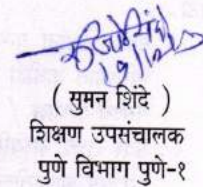 ( सुमन शिंदे )
शिक्षण उपसंचालक
पुणे विभाग पुणे-१